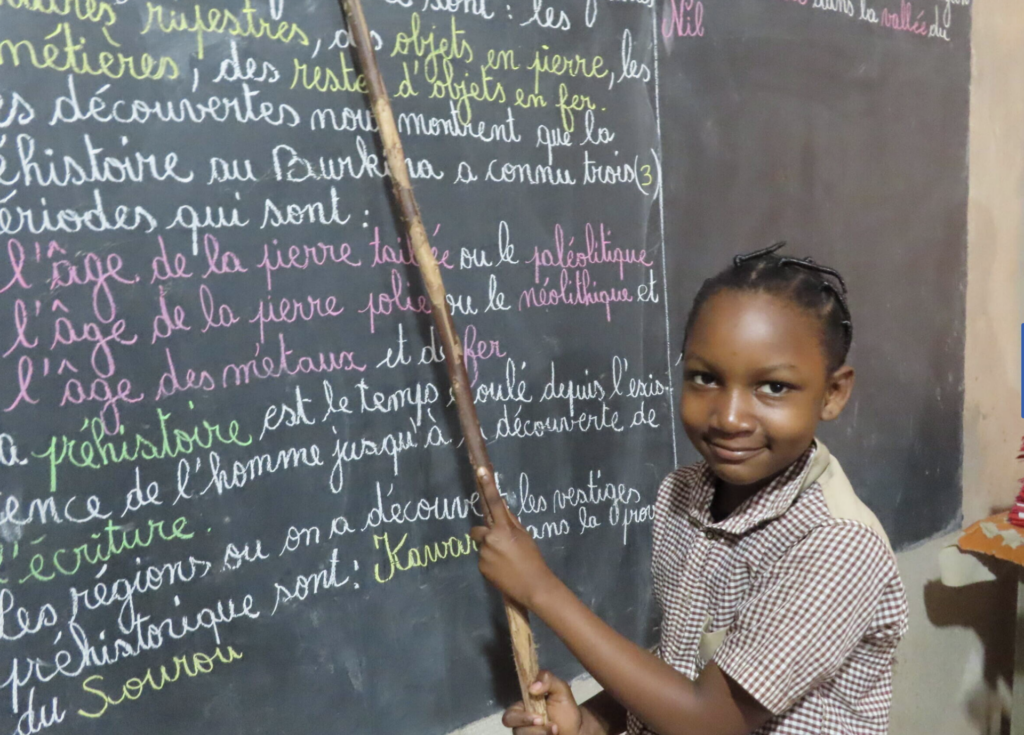 rupestres, des objets en pierre, les
métières, des reste d'objets en fer.
découvertes nous montrent que la
éhistoire au Burkina a connu trois (3)
ériodes qui sont :
l'âge de la pierre taillée ou le paléolitique
l'âge de la pierre polie ou le néolithique et
l'âge des métaux et du fer
a préhistoire est le temps écoulé depuis l'exis-
ence de l'homme jusqu'à la découverte de
l'écriture.
Les régions ou on a découvert les vestiges
préhistorique sont : dans la prov
du Sourou
dans la vallée du
Nil